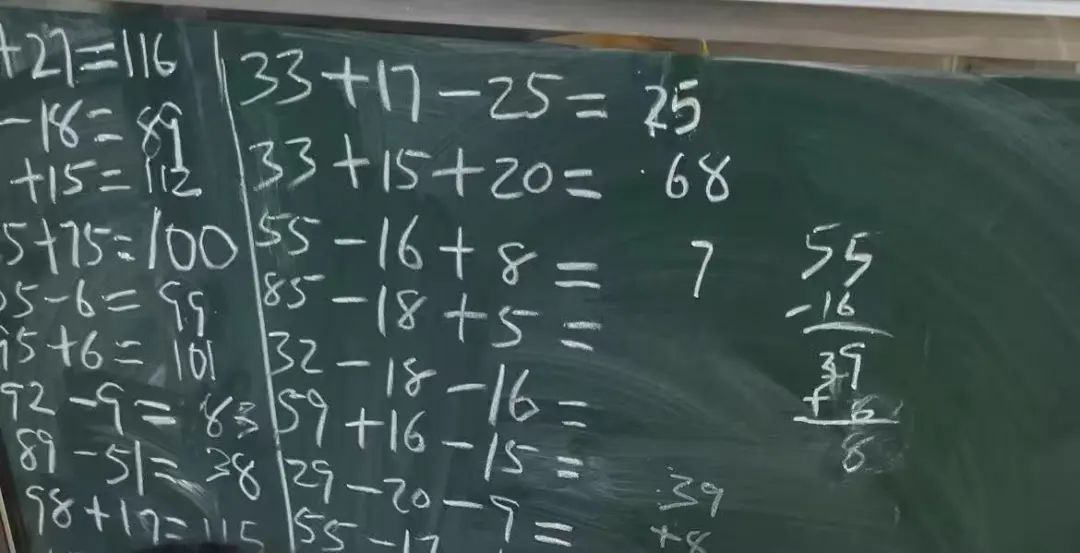 +27=116
-18=89
+15=112
5+75=100
5-6=99
95+6=101
92-9=83
89-51=38
98+17=115
33+17-25=25
33+15+20=68
55-16+8=7
85-18+5=
32-18-16=
59+16-15=
29-20-9=
55-17
55
-16
39
+6
8
39
+8